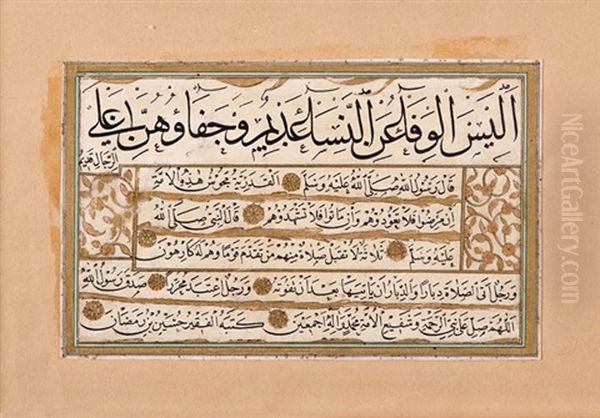 اليس الوفا عن النساء عديم وجفاؤهن على
الرجال عظيم
قال رسول الله صلى الله عليه وسلم القدرية مجوس هذه الامة
ان مرضوا فلا تعودوهم وان ماتوا فلا تشهدوهم قال النبي صلى الله
عليه وسلم ثلاثة لا تقبل صلاة منهم من تقدم قوما وهم له كارهون
ورجل اتى الصلاة دبارا والدبار ان ياتيها بعد ان تفوته ورجل اعتبد محررا صدق رسول الله
اللهم صل على نبي الرحمة وشفيع الامة محمد وآله اجمعين كتبه الفقير حسين بن رمضان
NiceArtGallery.com